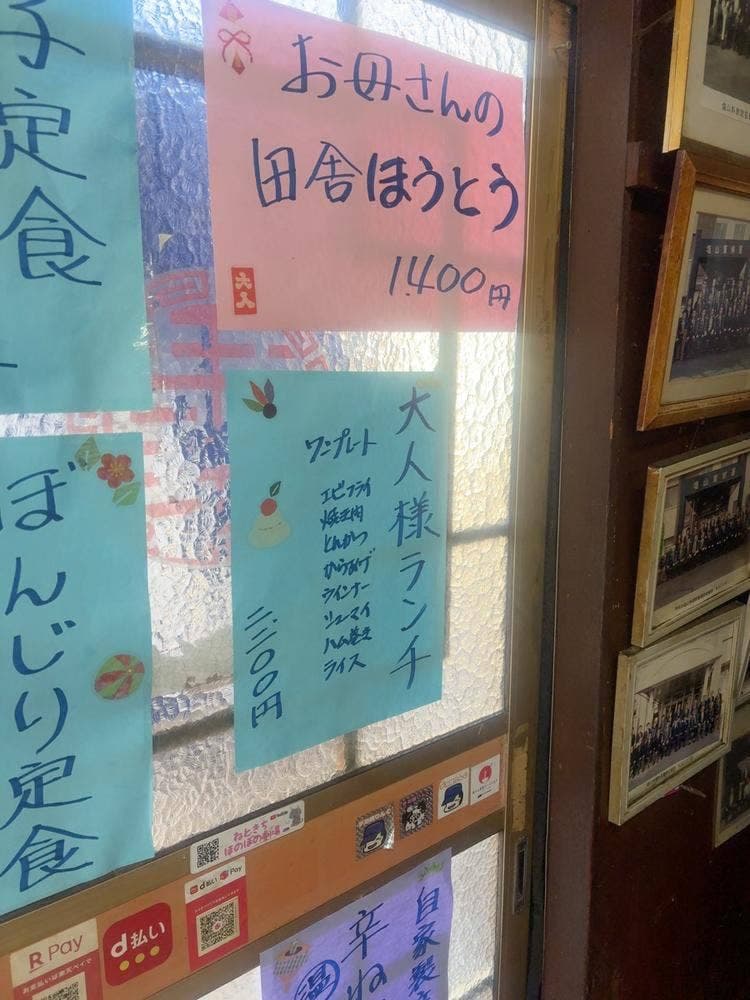 子定食
お母さんの
田舎ほうとう
1,400円
大入
大人様ランチ
ワンプレート
エビフライ
焼き肉
とんかつ
からあげ
ウインナー
シューマイ
ハム巻き
ライス
二、二〇〇円
ぼんじり定食
ねときち
ほのぼの劇場
d払い
R Pay
お支払いは楽天ペイで
d払い
自家製
辛ね